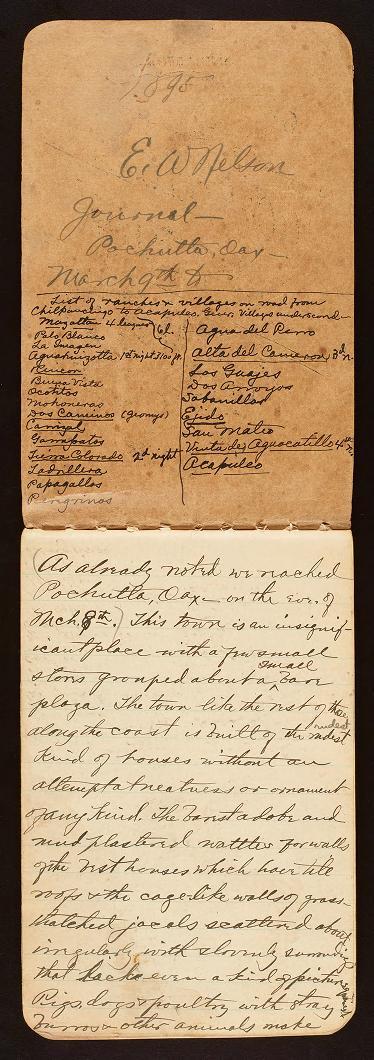 1895
E. W Nelson
Journal—
Pochutla, Oax—
March 9th to
List of ranches & villages on road from
Chilpancingo to Acapulco. Guer. Villages underscored—
Mazatlan 4 leagues
6 l.
Palo Blanco
La Imagen
Aguahuizotla 1st night 3100 ft.
Rincon
Buena Vista
Ocotitos
Mohoneras
Dos Caminos
Carrizal
Garrapatos
Tierra Colorado 2d night
Ladrillera
Papagallos
Peregrinos
Agua del Perro
Alta del Camaron 3d n.
Los Guajes
Dos Arroyos
Sabanillas
Ejido
San Mateo
Venta de Aguacatillo 4th n.
Acapulco
(As already noted we reached
Pochutla, Oax— on the eve. of
Mch. 8th.) This town is an insignif-
icant place with a few small
stores grouped about a bare
plaza. The town like the rest of those
along the coast is built of the rudest
rudest
kind of houses without an
attempt at neatness or ornament
of any kind. The barest adobe and
mud plastered wattles for walls
of the best houses which have tile
roofs & the cage-like walls of grass
thatched jacals scattered about
irregularly with slovenly surroundings
that lacks even a kind of picturesqueness
Pigs, dogs & poultry with stray
burros & other animals make